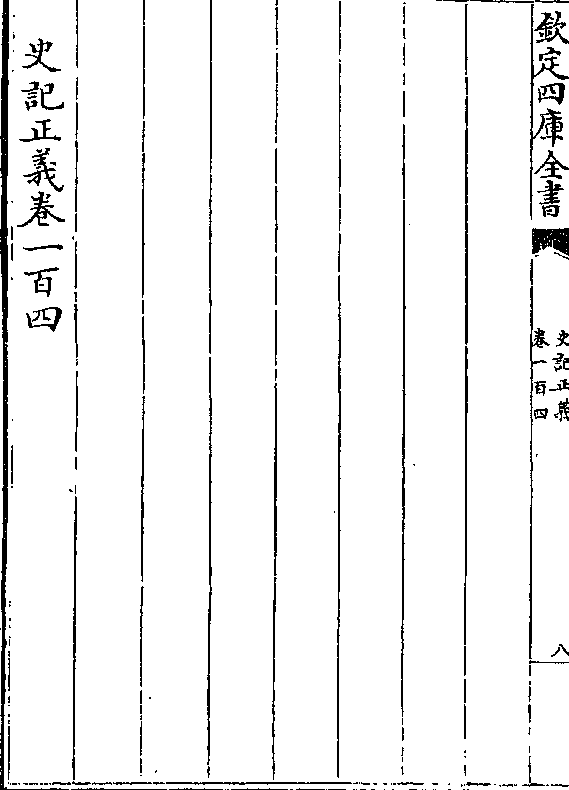 欽定四庫全書
史記正義
卷一百四
八
史記正義卷一百四